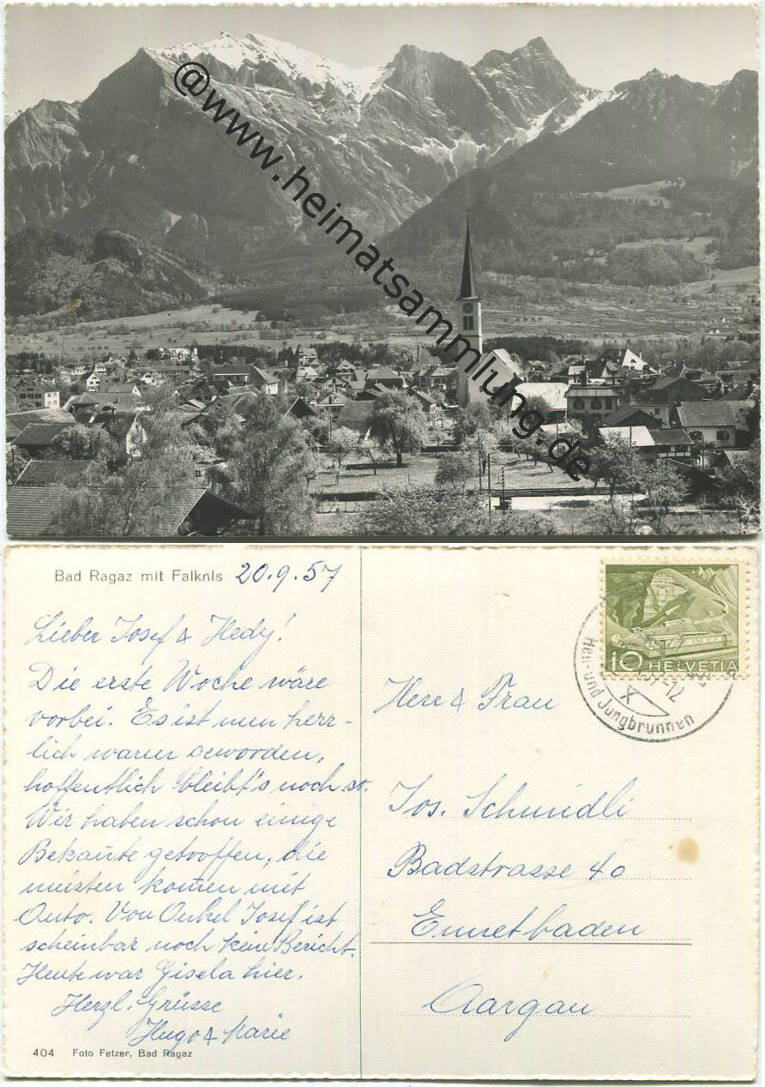 @www.heimatsammlung.de
Bad Ragaz mit Falknis 20.9.57
Lieber Josef & Hedy!
Die erste Woche wäre
vorbei. Es ist nun herr-
lich warm geworden,
hoffentlich bleibt's noch so.
Wir haben schon einige
Bekannte getroffen, die
meisten komen mit
Auto. Von Onkel Josef ist
scheinbar noch kein Bericht.
Heute war Gisela hier.
Herzl. Grüsse
Hugo & Marie
404 Foto Fetzer, Bad Ragaz
10 HELVETIA
57-12
X
Heil- und Jungbrunnen
Herr & Frau
Jos. Schmidli
Badstrasse 40
Ennetbaden
Aargau